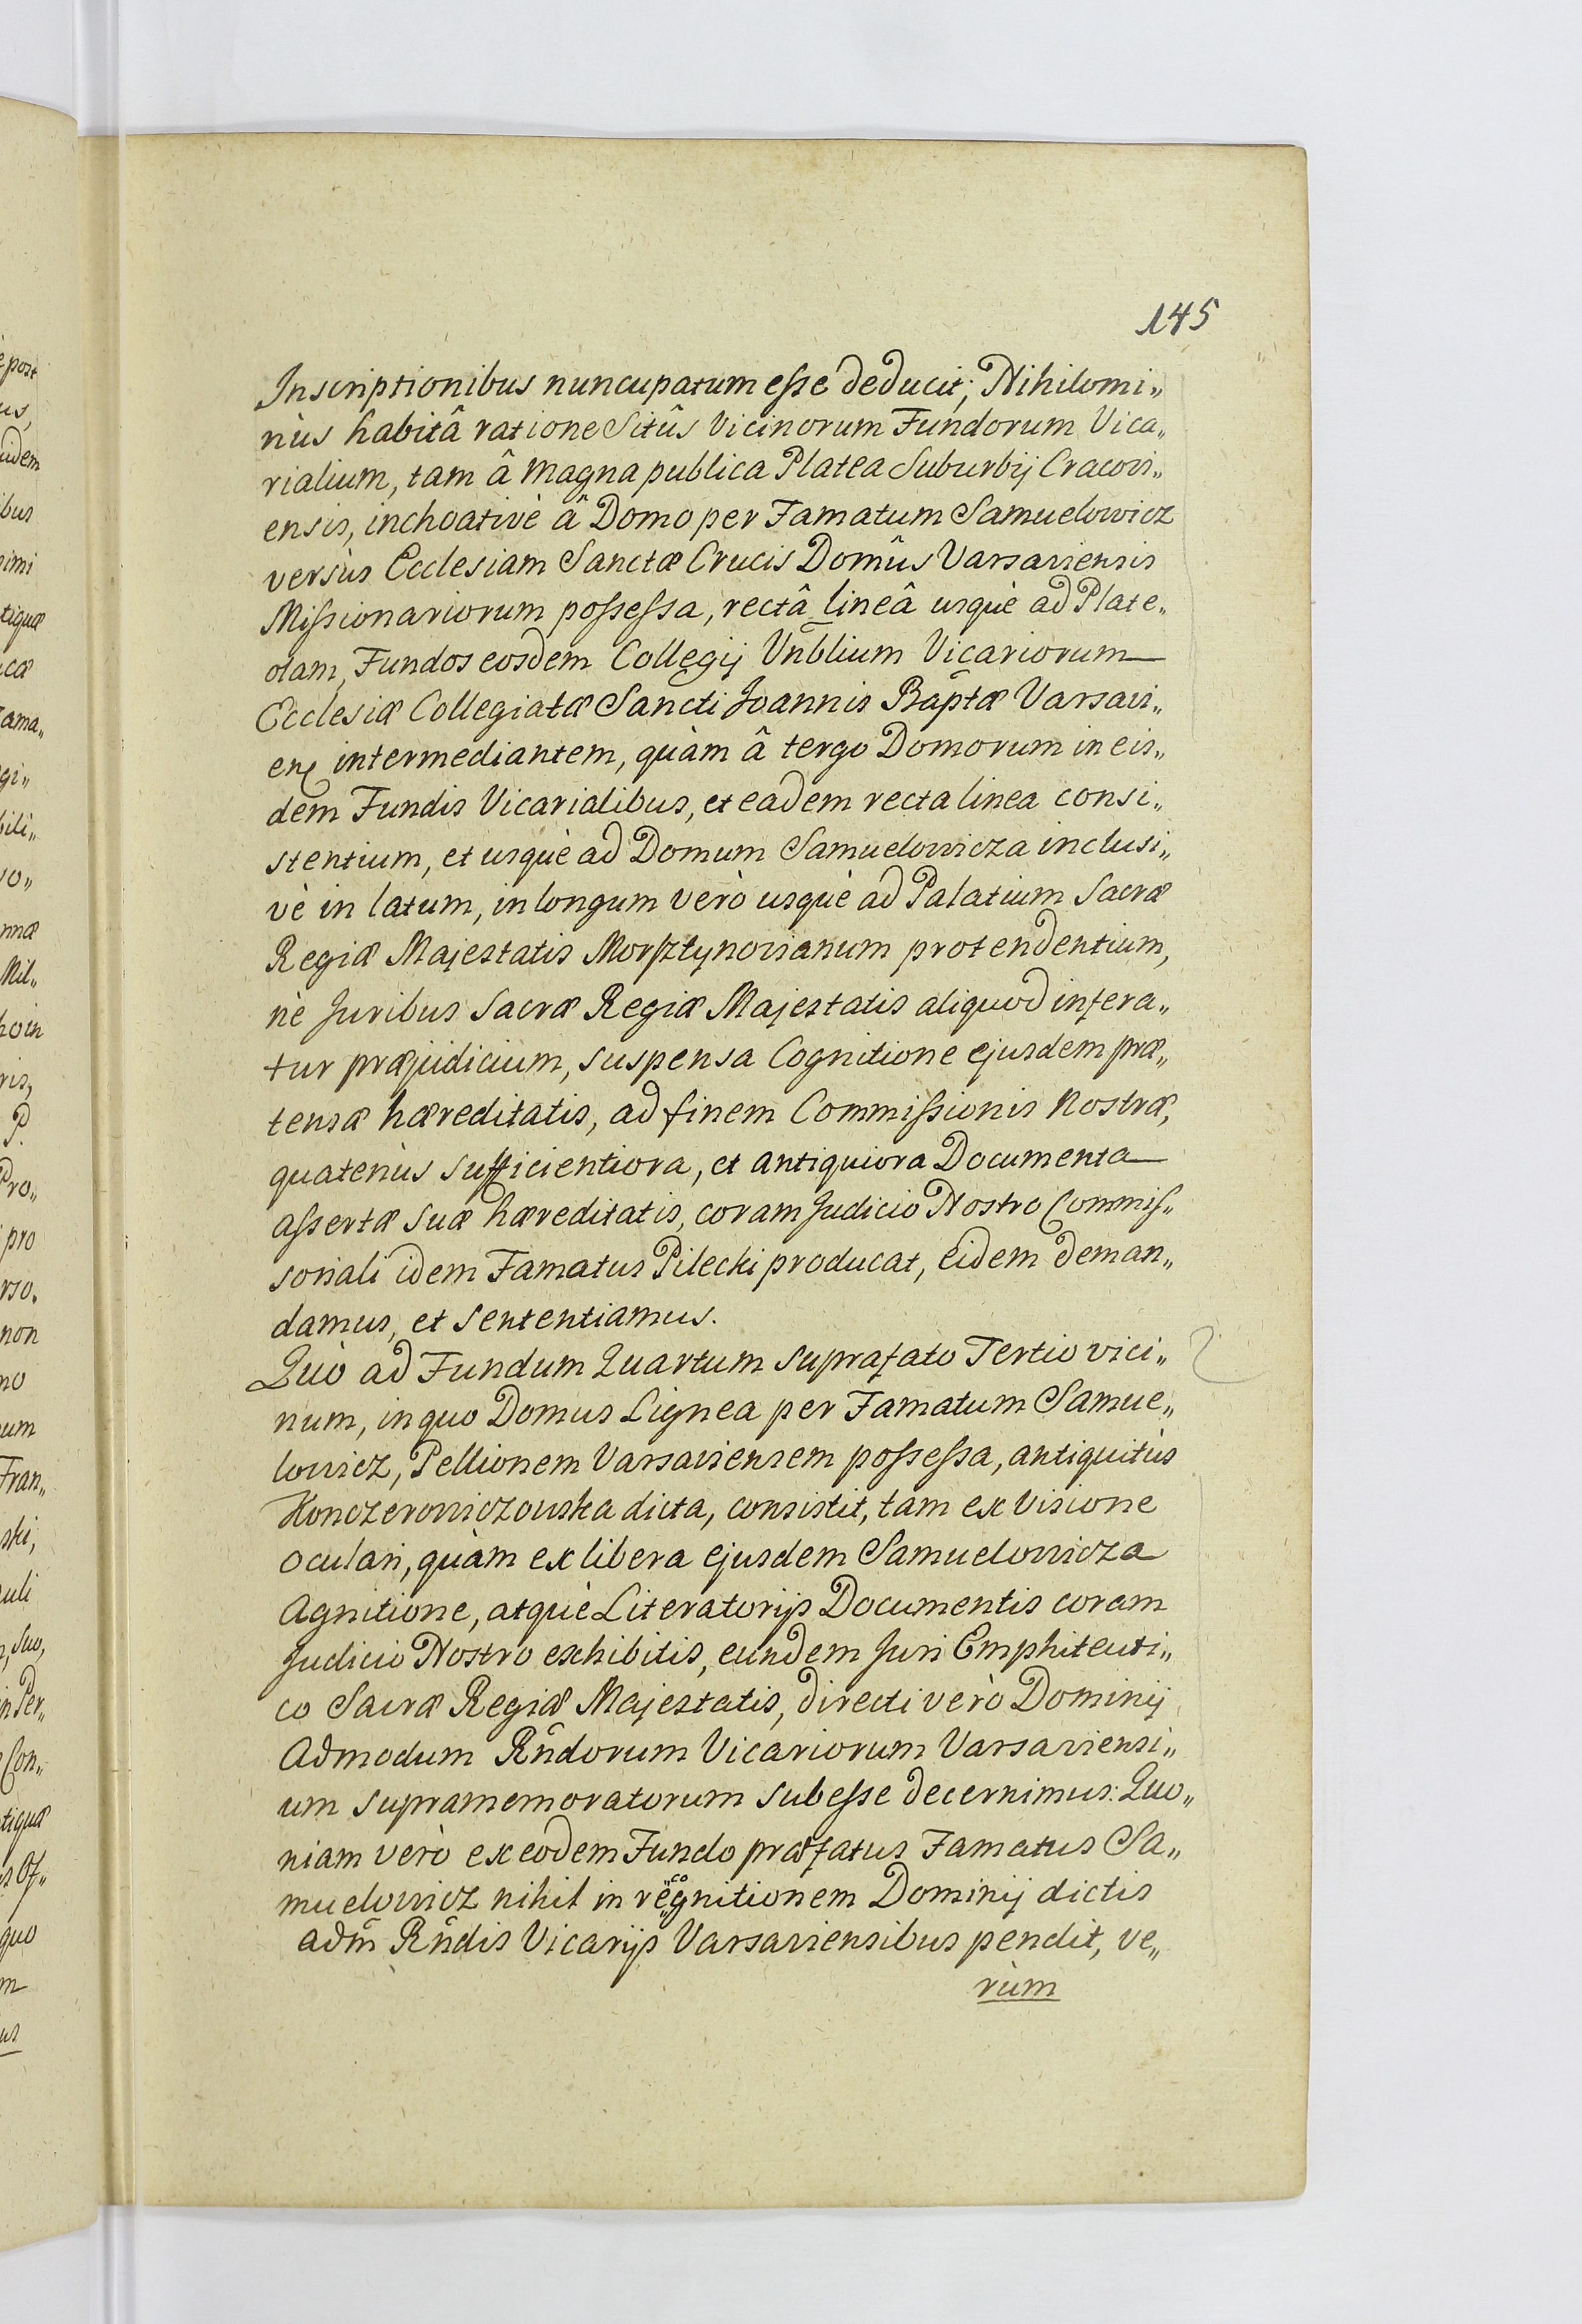 145
Inscriptionibus nuncupatum eſse deducit; Nihilomi„
nùs habitâ ratione Sitûs Vicinorum Fundorum Vica„
rialium, tam â magna publica Platea Suburbij Cracovi„
ensis, inchoativè â Domo per Famatum Samuelowicz
versùs Ecclesiam Sanctæ Crucis Domûs Varsaviensis
Miſsionariorum poſseſsa, rectâ lineâ usquè ad Plate„
olam, Fundos eosdem Collegij Vn̄blium Vicariorum
Ecclesiæ Collegiatæ Sancti Joannis Bap̄tæ Varsavi„
enę intermediantem, quàm â tergo Domorum in eis„
dem Fundis Vicarialibus, et eadem recta linea consi„
stentium, et usquè ad Domum Samuelowicza inclusi„
vè in latum, in longum verò usquè ad Palatium Sacræ
Regiæ Majestatis Morſztynovianum protendentium,
nè Juribus Sacræ Regiæ Majestatis aliquod infera„
tur præjudicium, suspensa Cognitione ejusdem præ„
tensæ hæreditatis, ad finem Commiſsionis Nostræ,
quatenùs sufficientiora, et antiquiora Documenta
aſsertæ suæ hæreditatis, coram Judicio Nostro Commiſ„
soriali idem Famatus Pilecki producat, eidem deman„
damus, et sententiamus.
Quò ad Fundum Quartum suprafato Tertio vici„
num, in quo Domus Lignea per Famatum Samue„
lowicz, Pellionem Varsaviensem poſseſsa, antiquitùs
Konczerowiczowska dicta, consistit, tam ex Visione
oculari, quàm ex libera ejusdem Samuelowicza
Agnitione, atquè Literatorijs Documentis coram
Judicio Nostro exhibitis, eundem Juri Emphiteuti„
co Sacræ Regiæ Majestatis, directi verò Dominij
Admodum Rn̂dorum Vicariorum Varsaviensi„
um supramemoratorum subeſse decernimus: Quo„
niam verò ex eodem Fundo præfatus Famatus Sa„
muelowicz nihil in recognitionem Dominij dictis
adm̂ Rn̂dis Vicarijs Varsaviensibus pendit, ve„
rùm